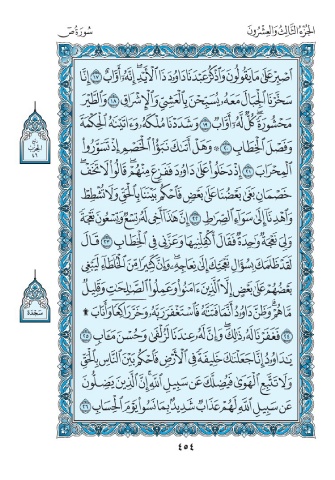 الجزء الثالث والعشرون سورة ص
ٱصۡبِرۡ عَلَىٰ مَا يَقُولُونَ وَٱذۡكُرۡ عَبۡدَنَا دَاوُۥدَ ذَا ٱلۡأَيۡدِۖ إِنَّهُۥٓ أَوَّابٌ ١٧ إِنَّا
سَخَّرۡنَا ٱلۡجِبَالَ مَعَهُۥ يُسَبِّحۡنَ بِٱلۡعَشِيِّ وَٱلۡإِشۡرَاقِ ١٨ وَٱلطَّيۡرَ
مَحۡشُورَةٗۖ كُلّٞ لَّهُۥٓ أَوَّابٞ ١٩ وَشَدَدۡنَا مُلۡكَهُۥ وَءَاتَيۡنَٰهُ ٱلۡحِكۡمَةَ
وَفَصۡلَ ٱلۡخِطَابِ ٢٠ ۞ وَهَلۡ أَتَىٰكَ نَبَؤُاْ ٱلۡخَصۡمِ إِذۡ تَسَوَّرُواْ
ٱلۡمِحۡرَابَ ٢١ إِذۡ دَخَلُواْ عَلَىٰ دَاوُۥدَ فَفَزِعَ مِنۡهُمۡۖ قَالُواْ لَا تَخَفۡۖ
خَصۡمَانِ بَغَىٰ بَعۡضُنَا عَلَىٰ بَعۡضٖ فَٱحۡكُم بَيۡنَنَا بِٱلۡحَقِّ وَلَا تُشۡطِطۡ
وَٱهۡدِنَآ إِلَىٰ سَوَآءِ ٱلصِّرَٰطِ ٢٢ إِنَّ هَٰذَآ أَخِي لَهُۥ تِسۡعٞ وَتِسۡعُونَ نَعۡجَةٗ
وَلِيَ نَعۡجَةٞ وَٰحِدَةٞ فَقَالَ أَكۡفِلۡنِيهَا وَعَزَّنِي فِي ٱلۡخِطَابِ ٢٣ قَالَ
لَقَدۡ ظَلَمَكَ بِسُؤَالِ نَعۡجَتِكَ إِلَىٰ نِعَاجِهِۦۖ وَإِنَّ كَثِيرٗا مِّنَ ٱلۡخُلَطَآءِ لَيَبۡغِي
بَعۡضُهُمۡ عَلَىٰ بَعۡضٍ إِلَّا ٱلَّذِينَ ءَامَنُواْ وَعَمِلُواْ ٱلصَّٰلِحَٰتِ وَقَلِيلٞ
مَّا هُمۡۗ وَظَنَّ دَاوُۥدُ أَنَّمَا فَتَنَّٰهُ فَٱسۡتَغۡفَرَ رَبَّهُۥ وَخَرَّۤ رَاكِعٗاۤ وَأَنَابَ ۩
٢٤ فَغَفَرۡنَا لَهُۥ ذَٰلِكَۖ وَإِنَّ لَهُۥ عِندَنَا لَزُلۡفَىٰ وَحُسۡنَ مَـَٔابٖ ٢٥
يَٰدَاوُۥدُ إِنَّا جَعَلۡنَٰكَ خَلِيفَةٗ فِي ٱلۡأَرۡضِ فَٱحۡكُم بَيۡنَ ٱلنَّاسِ بِٱلۡحَقِّ
وَلَا تَتَّبِعِ ٱلۡهَوَىٰ فَيُضِلَّكَ عَن سَبِيلِ ٱللَّهِۚ إِنَّ ٱلَّذِينَ يَضِلُّونَ
عَن سَبِيلِ ٱللَّهِ لَهُمۡ عَذَابٞ شَدِيدُۢ بِمَا نَسُواْ يَوۡمَ ٱلۡحِسَابِ ٢٦
الحزب
٤٦
سجدة
٤٥٤